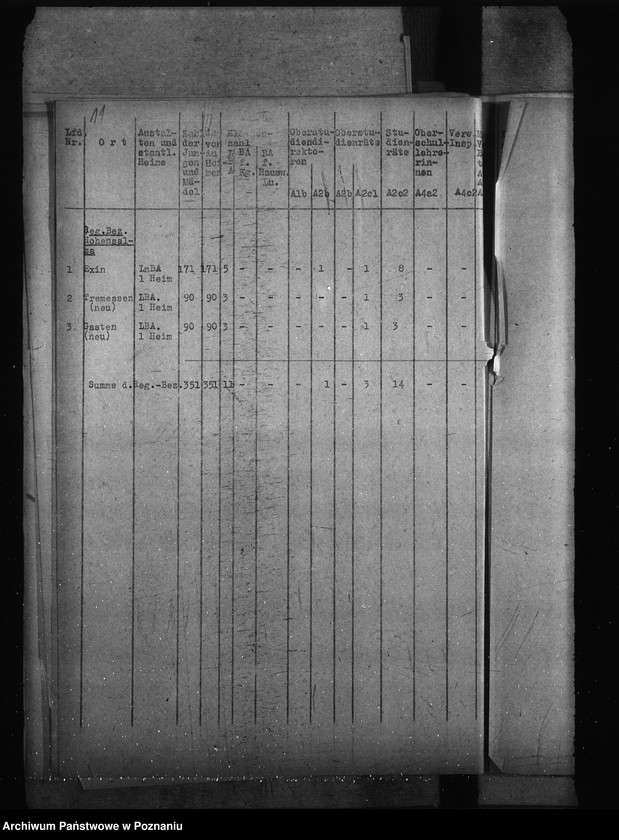 11
Lfd. Nr.
Ort
Anstal-
ten und
staatl.
Heime
Zahl
der
Jun-
gen
und
Mä-
del
von
in Hei
men
BA
f.
Kg.
BA
f.
Hausw.
Lu.
Oberstu-
diendi-
rekto-
ren
A1b A2b
Oberstu-
dienräte
A2b A2c1
Stu-
dien-
räte
A2c2
Ober-
schul-
lehre-
rin-
nen
A4a2
Verw.
Insp.
A4c2
Reg.Bez.
Hohensal-
za
1 Exin LnBA 171 171 5 - - - 1 - 1 8 - -
1 Heim
2 Tremessen LBA. 90 90 3 - - - - - 1 3 - -
(neu) 1 Heim
3. Gasten LBA. 90 90 3 - - - - - 1 3 - -
(neu) 1 Heim
Summe d.Reg.-Bez.351 351 11 - - - 1 - 3 14 - -
Archiwum Państwowe w Poznaniu